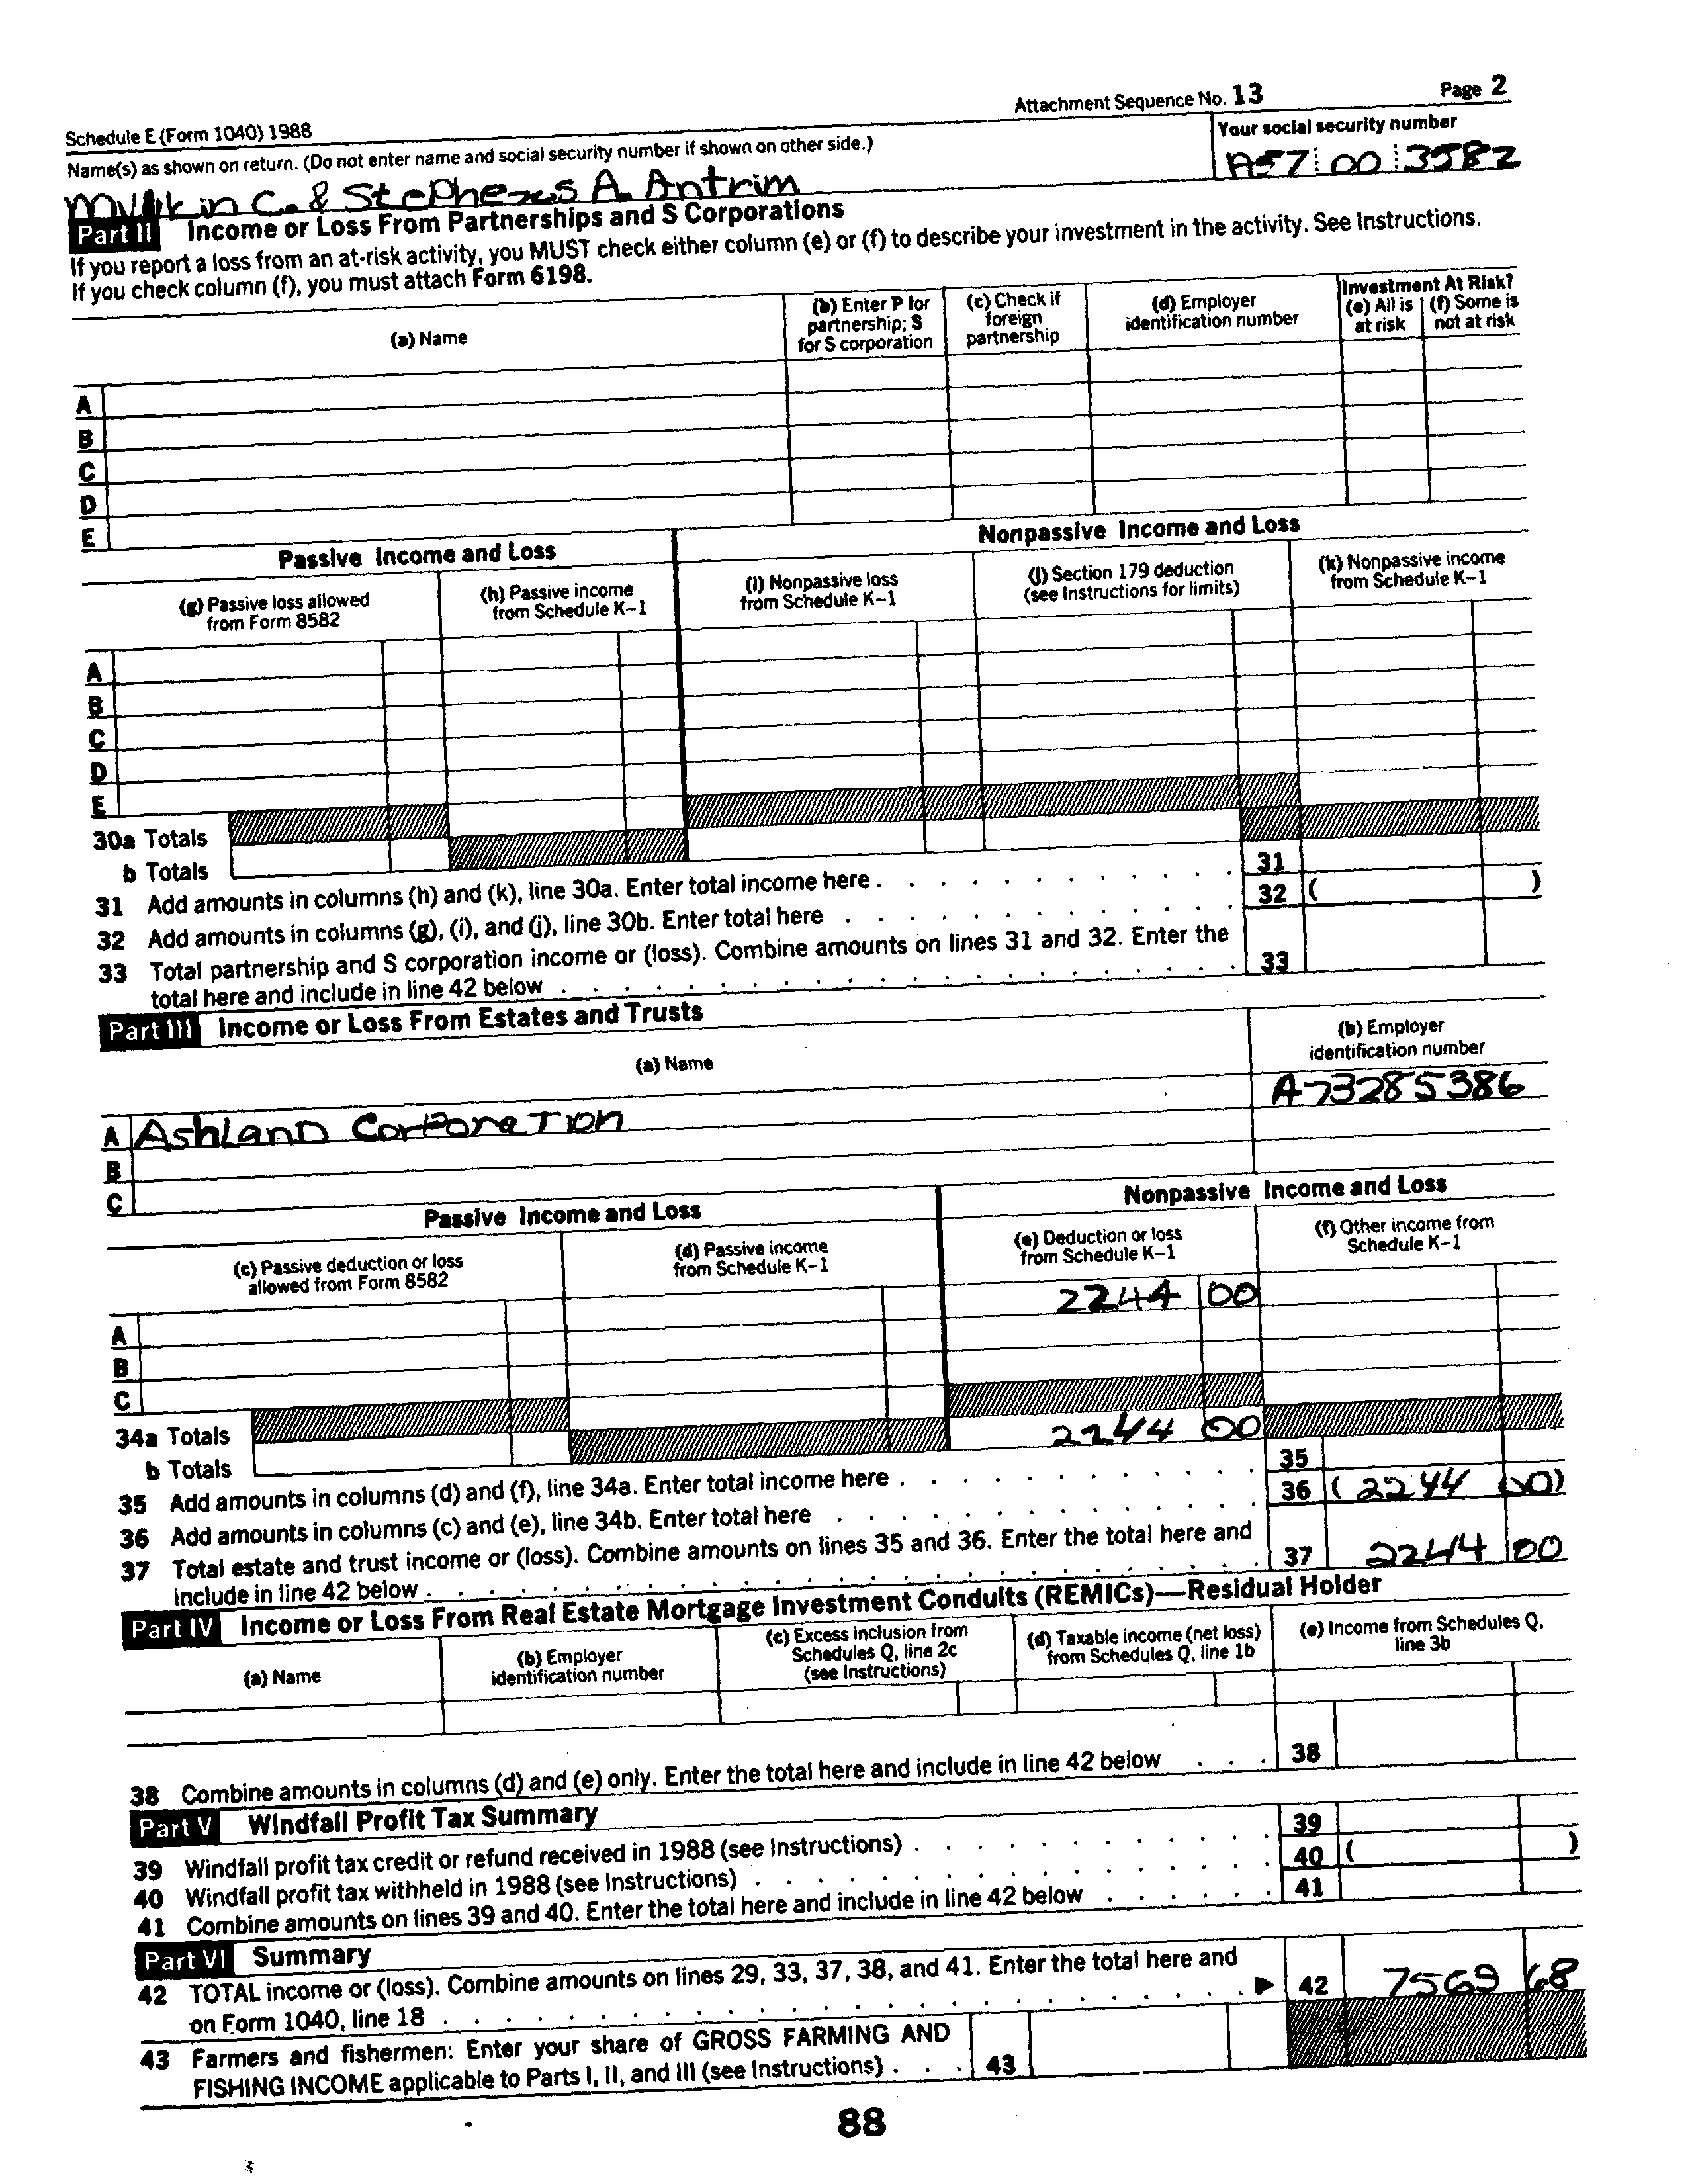 Attachment Sequence No. 13 Page 2
Schedule E (Form 1040) 1988
Name(s) as shown on return. (Do not enter name and social security number if shown on other side.) Your social security number
C. & A. Antrim A57 00 3582
Part II Income or Loss From Partnerships and S Corporations
If you report a loss from an at-risk activity, you MUST check either column (e) or (f) to describe your investment in the activity. See Instructions.
If you check column (f), you must attach Form 6198.
(a) Name
(b) Enter P for partnership; S for S corporation
(c) Check if foreign partnership
(d) Employer identification number
Investment At Risk?
(e) All is at risk
(f) Some is not at risk
A
B
C
D
E
Passive Income and Loss Nonpassive Income and Loss
(g) Passive loss allowed from Form 8582
(h) Passive income from Schedule K–1
(i) Nonpassive loss from Schedule K–1
(j) Section 179 deduction (see Instructions for limits)
(k) Nonpassive income from Schedule K–1
A
B
C
D
E
30a Totals
b Totals
31 Add amounts in columns (h) and (k), line 30a. Enter total income here . . . 31
32 Add amounts in columns (g), (i), and (j), line 30b. Enter total here . . . 32 ( )
33 Total partnership and S corporation income or (loss). Combine amounts on lines 31 and 32. Enter the
total here and include in line 42 below . . . 33
Part III Income or Loss From Estates and Trusts
(a) Name
(b) Employer identification number
A Ashland Corporation A73285386
B
C
Passive Income and Loss Nonpassive Income and Loss
(c) Passive deduction or loss allowed from Form 8582
(d) Passive income from Schedule K–1
(e) Deduction or loss from Schedule K–1
(f) Other income from Schedule K–1
A 2244 00
B
C
34a Totals
b Totals 2244 00
35 Add amounts in columns (d) and (f), line 34a. Enter total income here . . . 35
36 Add amounts in columns (c) and (e), line 34b. Enter total here . . . 36 (2244 00)
37 Total estate and trust income or (loss). Combine amounts on lines 35 and 36. Enter the total here and
include in line 42 below . . . 37 2244 00
Part IV Income or Loss From Real Estate Mortgage Investment Conduits (REMICs)—Residual Holder
(a) Name
(b) Employer identification number
(c) Excess inclusion from Schedules Q, line 2c (see Instructions)
(d) Taxable income (net loss) from Schedules Q, line 1b
(e) Income from Schedules Q, line 3b
38 Combine amounts in columns (d) and (e) only. Enter the total here and include in line 42 below . . . 38
Part V Windfall Profit Tax Summary
39 Windfall profit tax credit or refund received in 1988 (see Instructions) . . . 39
40 Windfall profit tax withheld in 1988 (see Instructions) . . . 40 ( )
41 Combine amounts on lines 39 and 40. Enter the total here and include in line 42 below . . . 41
Part VI Summary
42 TOTAL income or (loss). Combine amounts on lines 29, 33, 37, 38, and 41. Enter the total here and
on Form 1040, line 18 . . . ▶ 42 7569 68
43 Farmers and fishermen: Enter your share of GROSS FARMING AND
FISHING INCOME applicable to Parts I, II, and III (see Instructions) . . . 43
88